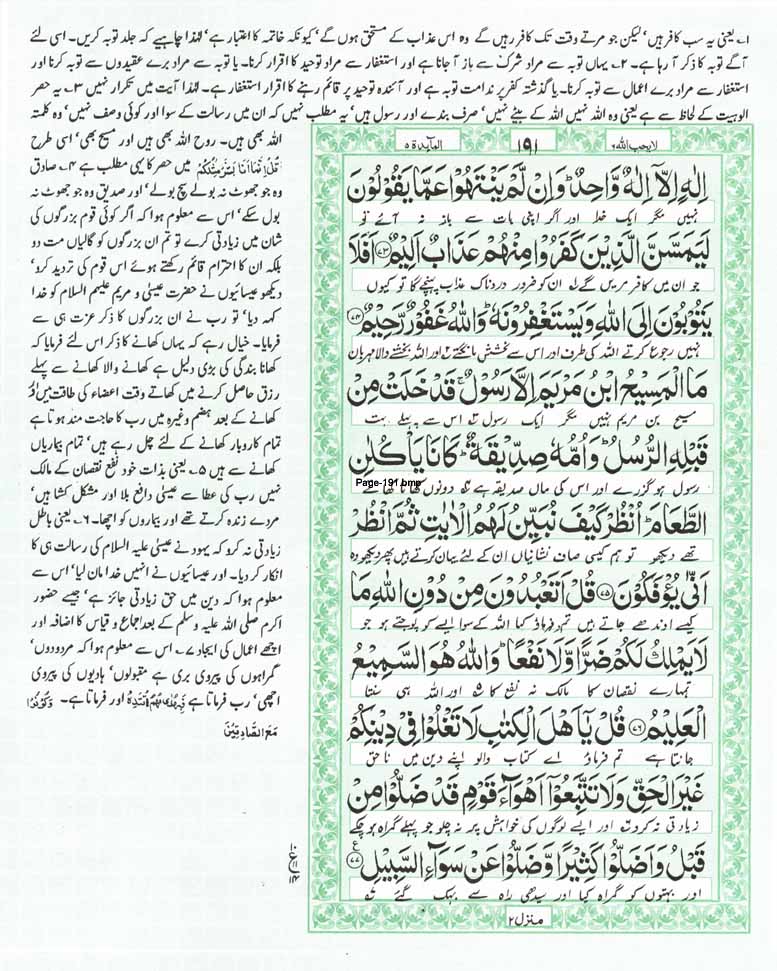 ۱؎ یعنی یہ سب کافر ہیں‘ لیکن جو مرتے وقت تک کافر رہیں گے وہ اس عذاب کے مستحق ہوں گے‘ کیونکہ خاتمہ کا اعتبار ہے‘ لہٰذا چاہیے کہ جلد توبہ کریں۔ اسی لئے
آگے توبہ کا ذکر آ رہا ہے۔ ۲؎ یہاں توبہ سے مراد شرک سے باز آ جانا ہے اور استغفار سے مراد توحید کا اقرار کرنا۔ یا توبہ سے مراد برے عقیدوں سے توبہ کرنا اور
استغفار سے مراد برے اعمال سے توبہ کرنا۔ یا گذشتہ کفر پر ندامت توبہ ہے اور آئندہ توحید پر قائم رہنے کا اقرار استغفار ہے۔ لہٰذا آیت میں تکرار نہیں ۳؎ یہ حصر
الوہیت کے لحاظ سے ہے یعنی وہ اللہ نہیں اللہ کے بیٹے نہیں‘ صرف بندے اور رسول ہیں‘ یہ مطلب نہیں کہ ان میں رسالت کے سوا اور کوئی وصف نہیں‘ وہ کلمتہ
لایحب اللہ ۶
۱۹۱
المآئدۃ ۵
اِلٰهٍ اِلَّاۤ اِلٰهٌ وَّاحِدٌؕ وَاِنْ لَّمْ يَنْتَهُوْا عَمَّا يَقُوْلُوْنَ
نہیں مگر ایک خدا اور اگر اپنی بات سے باز نہ آئے تو
لَيَمَسَّنَّ الَّذِيْنَ كَفَرُوْا مِنْهُمْ عَذَابٌ اَلِيْمٌ ﴿۷۳﴾ اَفَلَا
جو ان میں کافر مریں گے ۱؎ ان کو ضرور دردناک عذاب پہنچے گا تو کیوں
يَتُوْبُوْنَ اِلَى اللّٰهِ وَيَسْتَغْفِرُوْنَهٗؕ وَاللّٰهُ غَفُوْرٌ رَّحِيْمٌ ﴿۷۴﴾
نہیں رجوع کرتے اللہ کی طرف اور اس سے بخشش مانگتے ۲؎ اور اللہ بخشنے والا مہربان
مَا الْمَسِيْحُ ابْنُ مَرْيَمَ اِلَّا رَسُوْلٌۚ قَدْ خَلَتْ مِنْ
مسیح بن مریم نہیں مگر ایک رسول ۳؎ اس سے پہلے بہت
قَبْلِهِ الرُّسُلُؕ وَاُمُّهٗ صِدِّيْقَةٌؕ كَانَا يَاْكُلٰنِ
رسول ہو گزرے اور اس کی ماں صدیقہ ہے ۴؎ دونوں کھانا کھاتے
Page-191.bmp
الطَّعَامَؕ اُنْظُرْ كَيْفَ نُبَيِّنُ لَهُمُ الْاٰيٰتِ ثُمَّ انْظُرْ
تھے دیکھو تو ہم کیسی صاف نشانیاں ان کے لئے بیان کرتے ہیں پھر دیکھو وہ
اَنّٰى يُؤْفَكُوْنَ ﴿۷۵﴾ قُلْ اَتَعْبُدُوْنَ مِنْ دُوْنِ اللّٰهِ مَا
کیسے اوندھے جاتے ہیں تم فرماؤ کیا اللہ کے سوا ایسے کو پوجتے ہو جو
لَا يَمْلِكُ لَكُمْ ضَرًّا وَّلَا نَفْعًاؕ وَاللّٰهُ هُوَ السَّمِيْعُ
تمہارے نقصان کا مالک نہ نفع کا ۵؎ اور اللہ ہی سنتا
الْعَلِيْمُ ﴿۷۶﴾ قُلْ يٰۤاَهْلَ الْكِتٰبِ لَا تَغْلُوْا فِيْ دِيْنِكُمْ
جانتا ہے تم فرماؤ اے کتاب والو اپنے دین میں ناحق
غَيْرَ الْحَقِّ وَلَا تَتَّبِعُوْۤا اَهْوَآءَ قَوْمٍ قَدْ ضَلُّوْا مِنْ
زیادتی نہ کرو ۶؎ اور ایسے لوگوں کی خواہش پر نہ چلو جو پہلے گمراہ ہو چکے
قَبْلُ وَاَضَلُّوْا كَثِيْرًا وَّضَلُّوْا عَنْ سَوَآءِ السَّبِيْلِ ﴿۷۷﴾ ع
اور بہتوں کو گمراہ کیا اور سیدھی راہ سے بہک گئے ۷؎
منزل ۲
اللہ بھی ہیں۔ روح اللہ بھی ہیں اور مسیح بھی‘ اسی طرح
قُلْ اِنَّمَاۤ اَنَا بَشَرٌ مِّثْلُكُمْ میں حصر کا یہی مطلب ہے ۴؎ صادق
وہ جو جھوٹ نہ بولے سچ بولے‘ اور صدیق وہ جو جھوٹ نہ
بول سکے‘ اس سے معلوم ہوا کہ اگر کوئی قوم بزرگوں کی
شان میں زیادتی کرے تو تم ان بزرگوں کو گالیاں مت دو
بلکہ ان کا احترام قائم رکھتے ہوئے اس قوم کی تردید کرو‘
دیکھو عیسائیوں نے حضرت عیسیٰ و مریم علیہم السلام کو خدا
کہہ دیا‘ تو رب نے ان بزرگوں کا ذکر عزت ہی سے
فرمایا۔ خیال رہے کہ یہاں کھانے کا ذکر اس لئے فرمایا کہ
کھانا بندگی کی بڑی دلیل ہے کھانے والا کھانے سے پہلے
رزق حاصل کرنے میں کھاتے وقت اعضاء کی طاقت میں اور
کھانے کے بعد ہضم وغیرہ میں رب کا حاجت مند ہوتا ہے
تمام کاروبار کھانے کے لئے چل رہے ہیں‘ تمام بیماریاں
کھانے سے ہیں ۵؎ یعنی بذات خود نفع نقصان کے مالک
نہیں رب کی عطا سے عیسیٰ دافع بلا اور مشکل کشا ہیں‘
مردے زندہ کرتے تھے اور بیماروں کو اچھا۔ ۶؎ یعنی باطل
زیادتی نہ کرو کہ یہود نے عیسیٰ علیہ السلام کی رسالت ہی کا
انکار کر دیا۔ اور عیسائیوں نے انہیں خدا مان لیا‘ اس سے
معلوم ہوا کہ دین میں حق زیادتی جائز ہے‘ جیسے حضور
اکرم صلی اللہ علیہ وسلم کے بعد اجماع و قیاس کا اضافہ اور
اچھے اعمال کی ایجاد ۷؎ اس سے معلوم ہوا کہ مردودوں‘
گمراہوں کی پیروی بری ہے مقبولوں‘ ہادیوں کی پیروی
اچھی‘ رب فرماتا ہے فَبِهُدٰىهُمُ اقْتَدِهْ اور فرماتا ہے۔ وَكُوْنُوْا
مَعَ الصّٰدِقِيْنَ
۱۰
ع
۱۱
۱۴